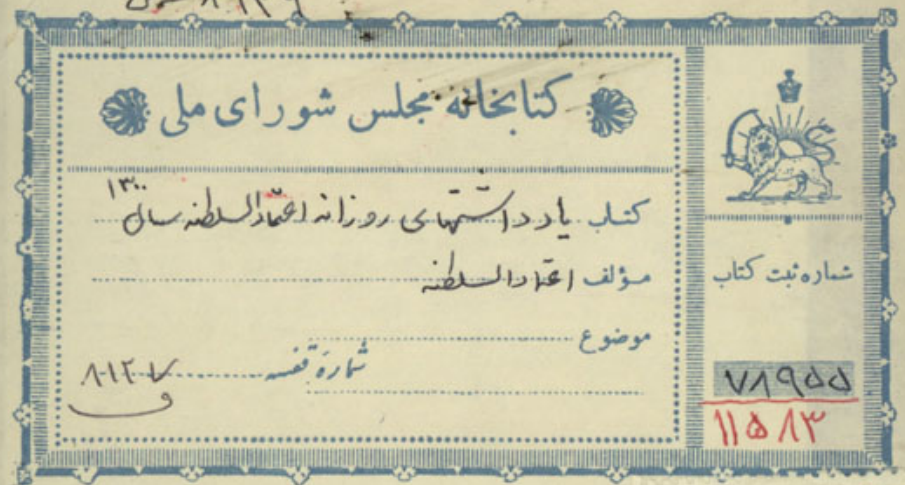 کتابخانه مجلس شورای ملی
کتاب یادداشتهای روزانه اعتمادالسلطنه سال ۱۳۰۰
مؤلف اعتمادالسلطنه
موضوع
شمارهٔ قفسه
شماره ثبت کتاب
۷۸۹۵۵
۱۱۵۸۳